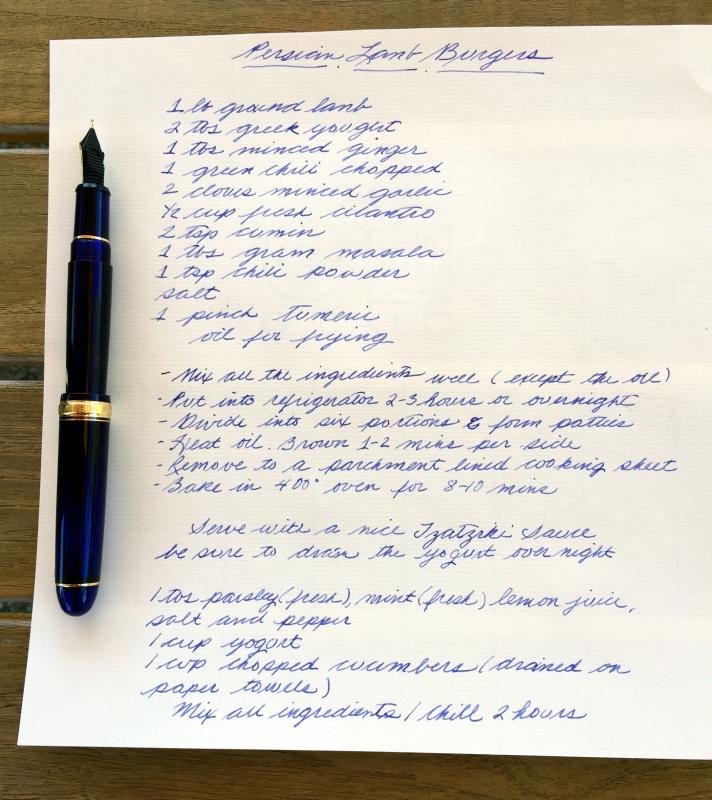 Persian Lamb Burgers
1 lb ground lamb
2 tbs greek yougurt
1 tbs minced ginger
1 green chili chopped
2 cloves minced garlic
1/2 cup fresh cilantro
2 tsp cumin
1 tbs gram masala
1 tsp chili powder
salt
1 pinch tumeric
oil for frying
- Mix all the ingredients well (except the oil)
- Put into refrigerator 2-3 hours or overnight
- Divide into six portions & form patties
- Heat oil. Brown 1-2 mins per side
- Remove to a parchment lined cooking sheet
- Bake in 400° oven for 8-10 mins
Serve with a nice Tzatziki Sauce
be sure to drain the yogurt overnight
1 tbs parsley (fresh), mint (fresh) lemon juice,
salt and pepper
1 cup yogurt
1 cup chopped cucumbers (drained on
paper towels)
Mix all ingredients / Chill 2 hours